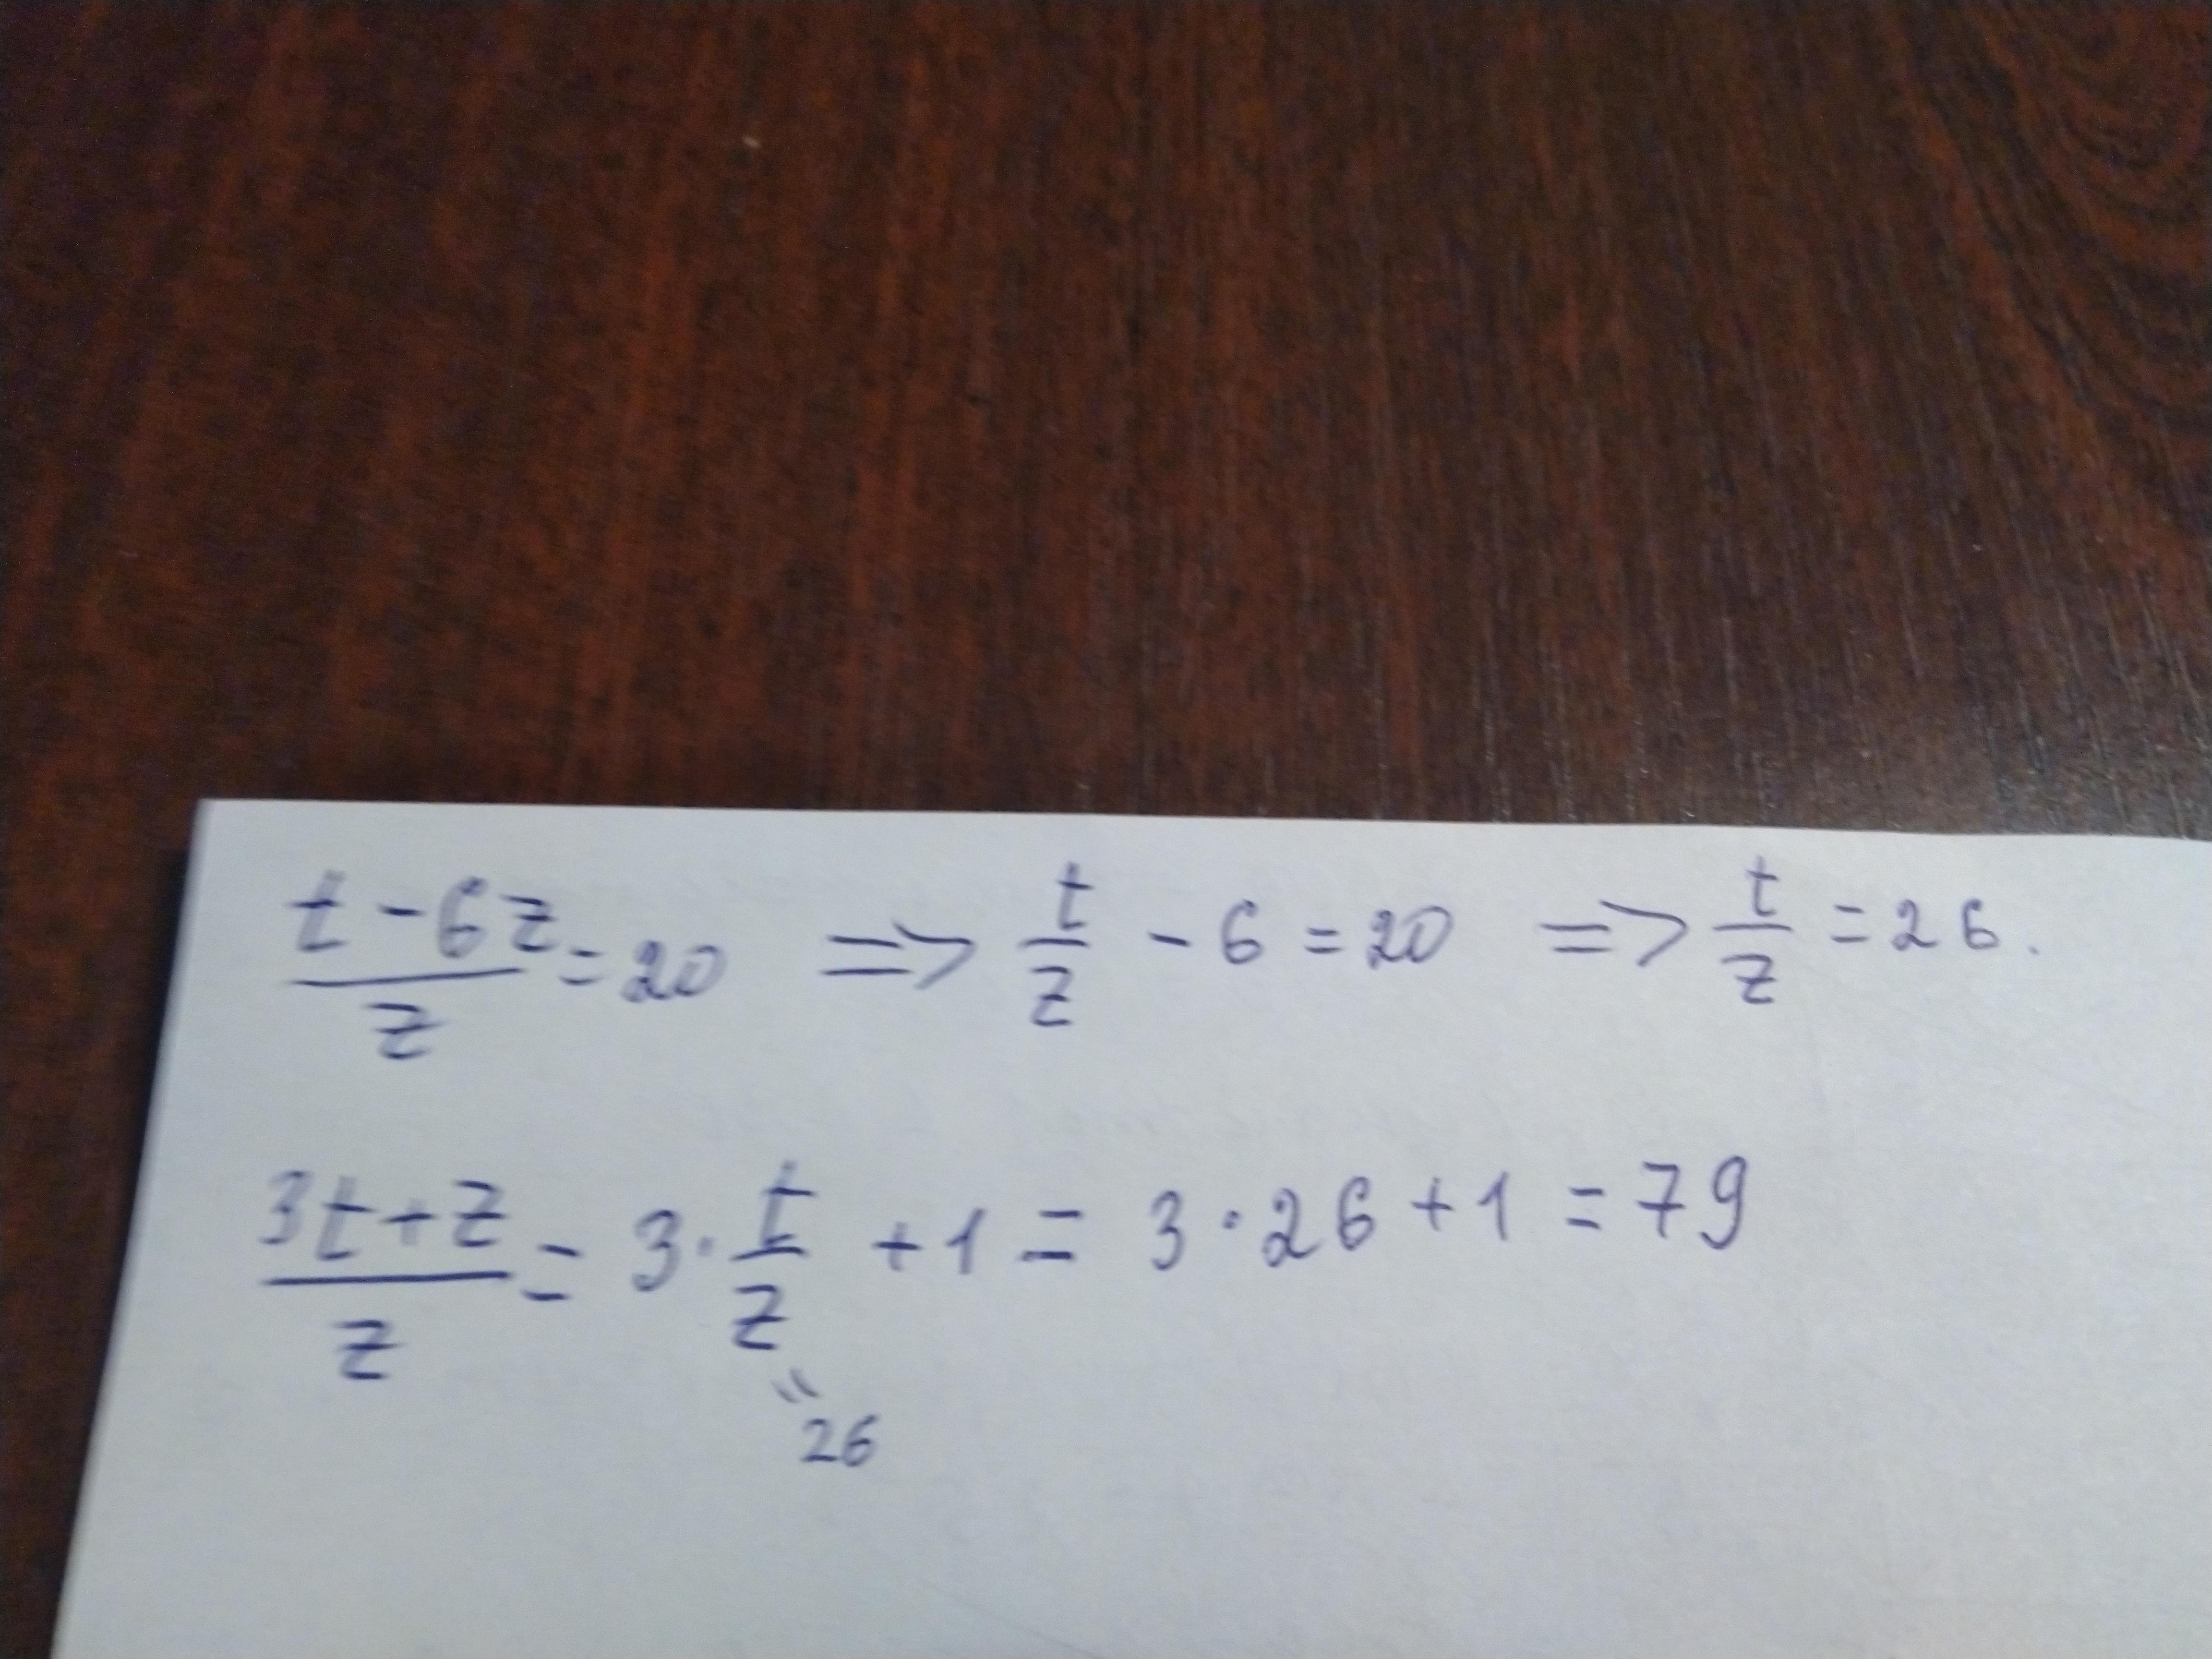 (t - 6z)/z = 20 => t/z - 6 = 20 => t/z = 26.
(3t + z)/z = 3 · t/z + 1 = 3 · 26 + 1 = 79
"
26